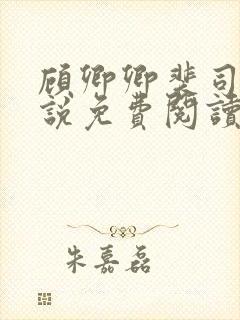 顾卿卿裴司
说免费阅读
朱嘉磊